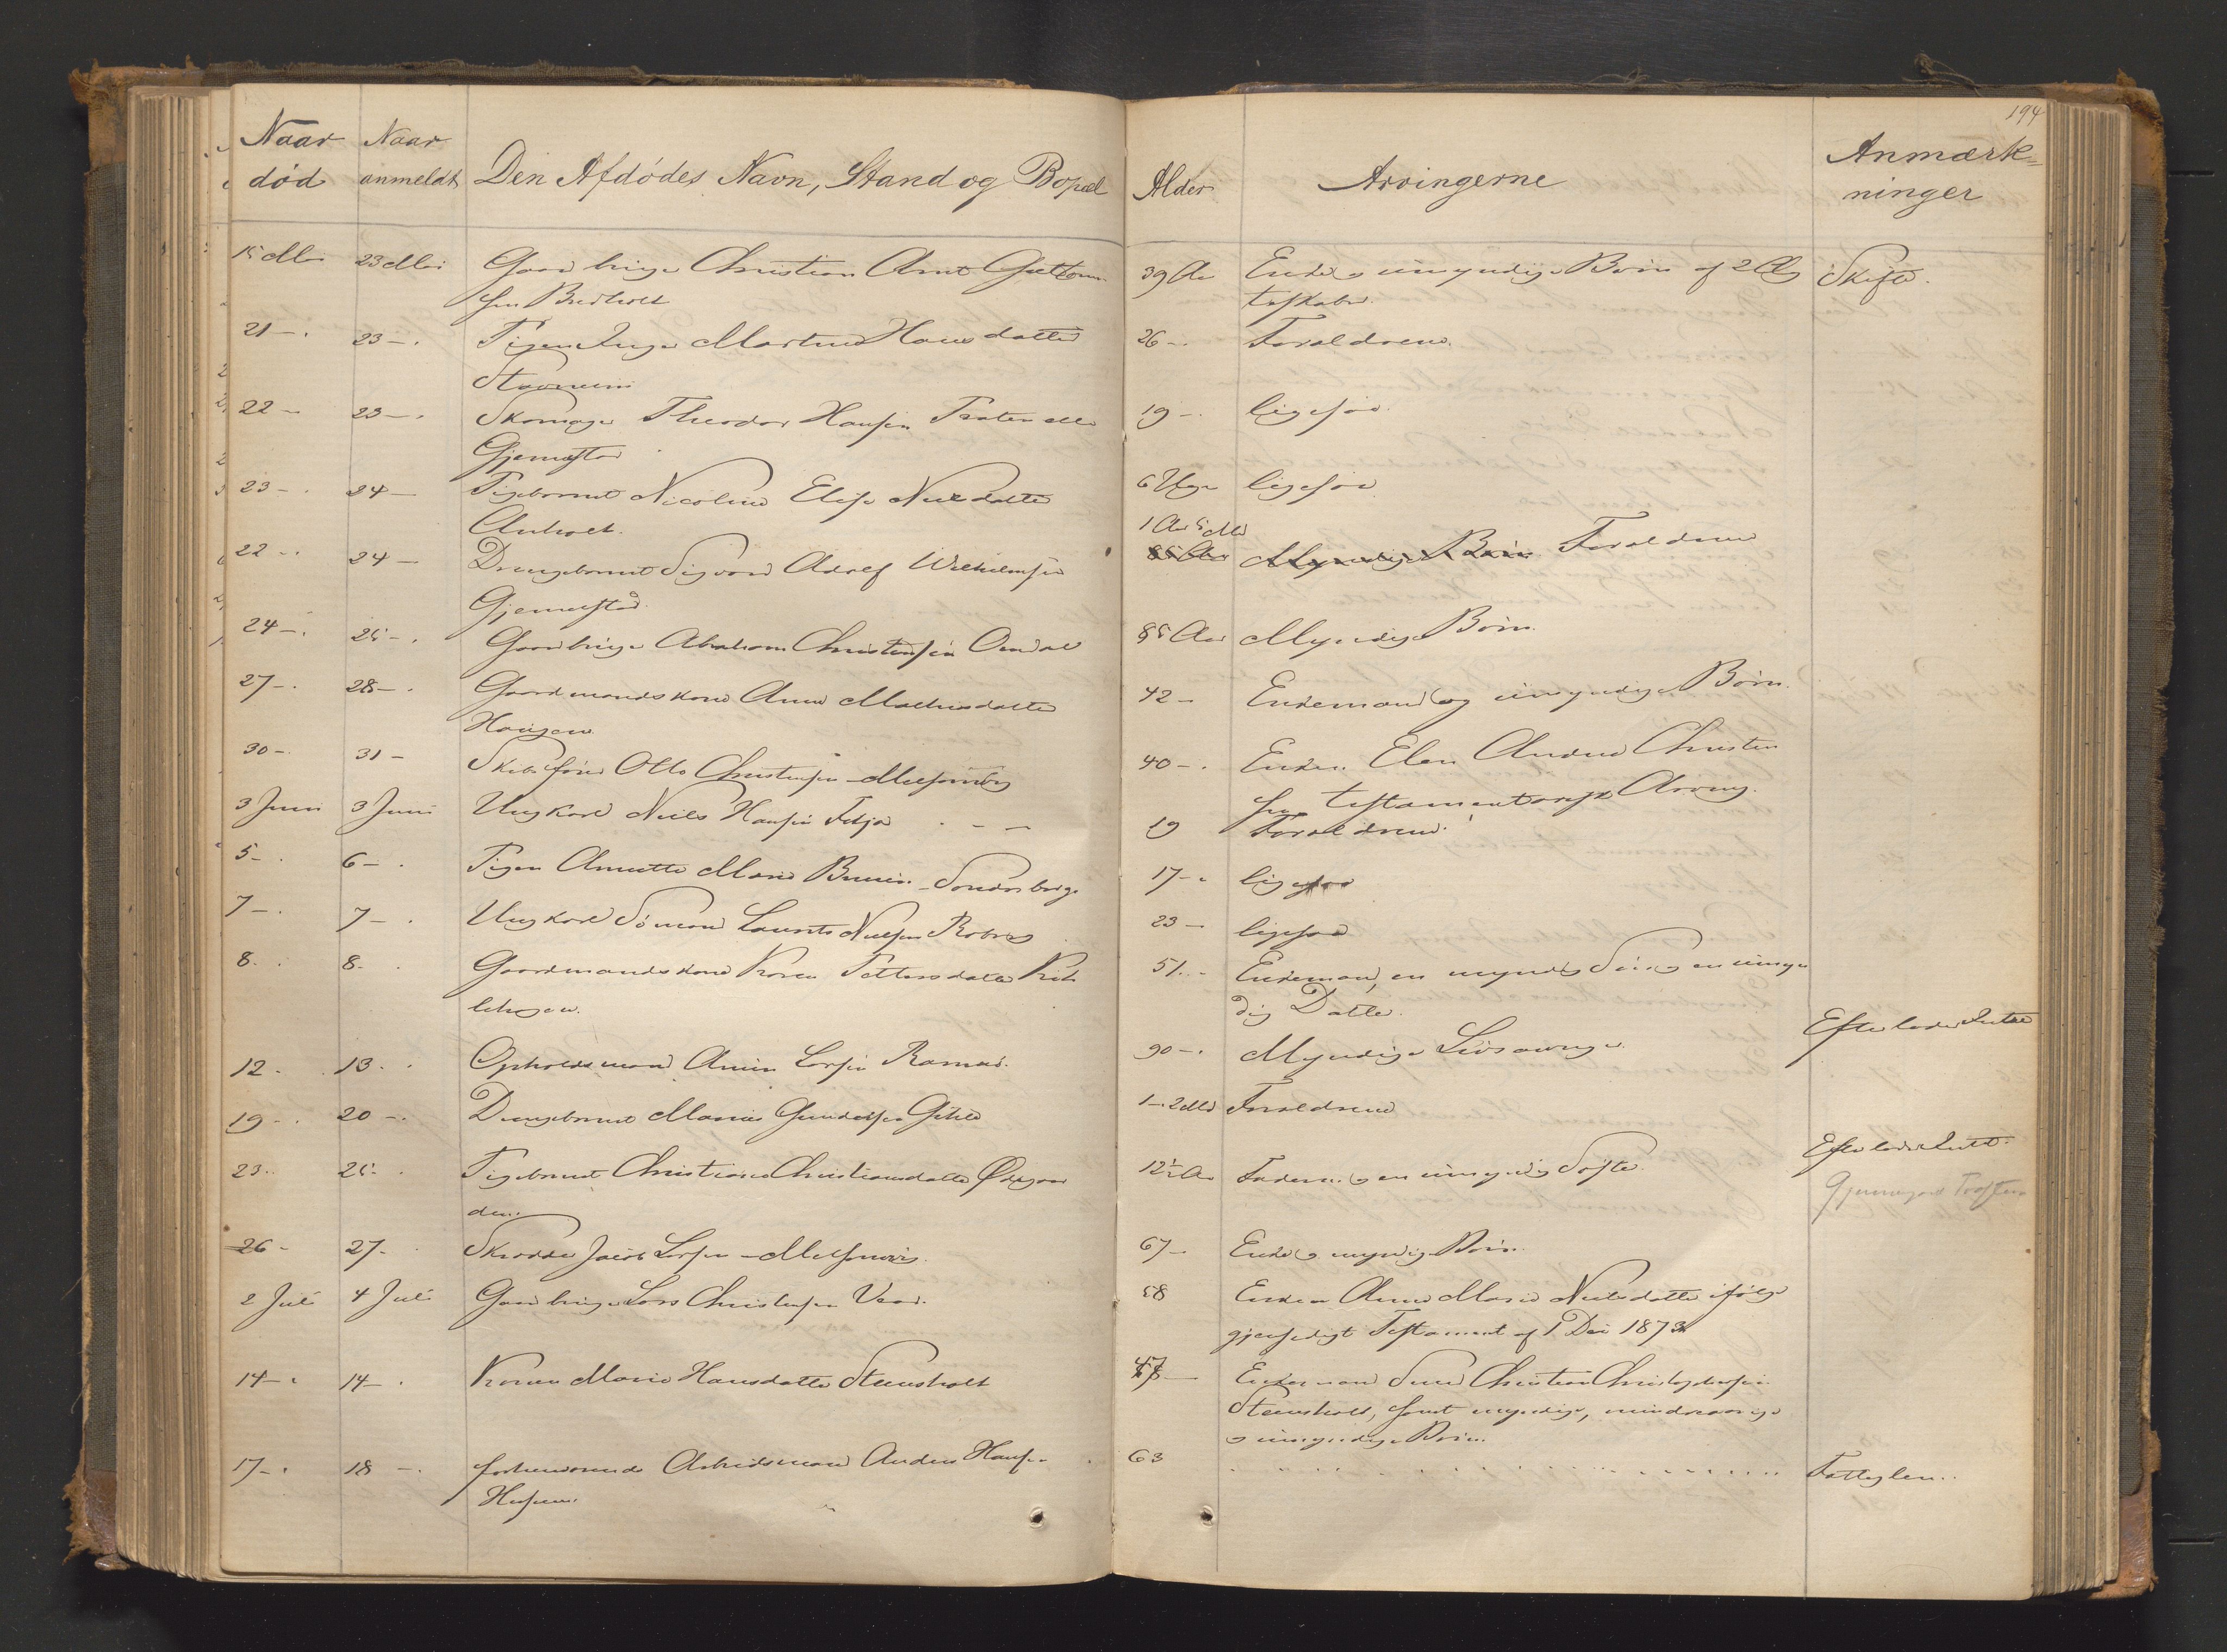 194
Naar død
Naar anmeldt
Den Afdødes Navn, Stand og Bopæl
Alder
Arvingerne
Anmærk-
ninger
15 Mai 23 Mai Gaardbruger Christian Arnt Guttorm- 39 Aar Enke og umyndige Børn af 2 Æg Skifte.
sen Bredholt teskaber.
21 — 23 — Pigen Inger Martine Hansdatter 26 — Forældrene.
Stavnum
22 — 23 — Skomager Theodor Hansen 19 — ligesaa.
Gjemestad
23 — 24 — Pigebarnet Nicoline Elise Nilsdatter 6 Uger ligesaa
Anholt. 1 Aar 5 Md
22 — 24 — Drengebarnet Sigvard Adolf Wilhelmsen 85 Aar Myndige Børn Forældrene
Gjemestad
24 — 25 — Gaardbruger Abraham Christensen Omdal 85 Aar Myndige Børn.
27 — 28 — Gaardmandskone Anne Mathisdatter 42 — Enkemand og umyndige Børn.
Haugen
30 — 31 — Skibsfører Otto Christensen Melsomvig 40 — Enken Elen Andrea Christen
sen testamentarisk Arving.
3 Juni 3 Juni Ungkarl Niels Hansen Fekja 19 Forældrene.
5 — 6 — Pigen Annette Marie Bruun Sondersborge 17 — ligesaa
7 — 7 — Ungkarl Simon Laurits Nielsen Robæk 23 — ligesaa
8 — 8 — Gaardmandskone Karen Pettersdatter 51 — Enkemand, en myndig Søn og en umyn
lehaugen. dig Datter.
12 — 13 — Opholdsmand Amun Larsen Ramnæs. 90 — Myndige Livsarvinger. Efterlader Intet
19 — 20 — Drengebarnet Marius Gundersen Gihle 1 — 2 Md Forældrene
23 — 25 — Pigebarnet Christiane Christiansdatter Ødegaar 12½ Aar Faderen og en umyndig Søster. Efterlader Intet.
den.
26 — 27 — Skrædder Jacob Larsen Melsomvig. 67 — Enke og myndige Børn.
2 Juli 4 Juli Gaardbruger Lars Christensen Vaar. 58 Enken Anne Marie Nilsdatter ifølge
gjensidigt Testament af 1 Dec 1873
14 — 14 — Karen Marie Hansdatter Steensholt 47 — Enkemand Christian Christophersen
Steensholt, samt myndige, mindreaarige
og umyndige Børn.
17 — 18 — forhenværende Arbeidsmand Anders Hansen 63 Fattiglem.